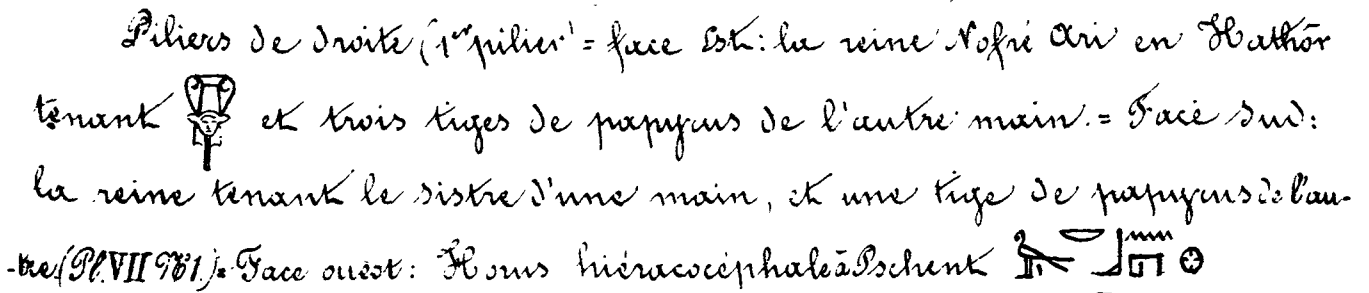 Piliers de droite (1er pilier) = face Est: la reine Nofré Ari en Hathōr
tenant et trois tiges de papyrus de l'autre main. = Face Sud:
la reine tenant le sistre d'une main, et une tige de papyrus de l'au-
-tre (Pl. VII 961.) = Face ouest: Horus hiéracocéphale à Pschent